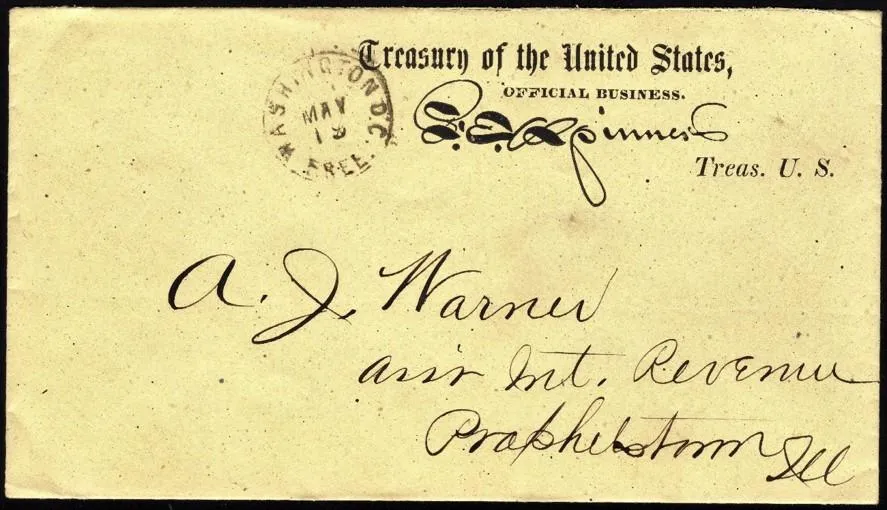 Treasury of the United States,
OFFICIAL BUSINESS.
F. E. Spinner
Treas. U. S.
WASHINGTON D.C.
MAY
19
FREE.
A. J. Warner
Ass'r Int. Revenue
Prophetstown Ill